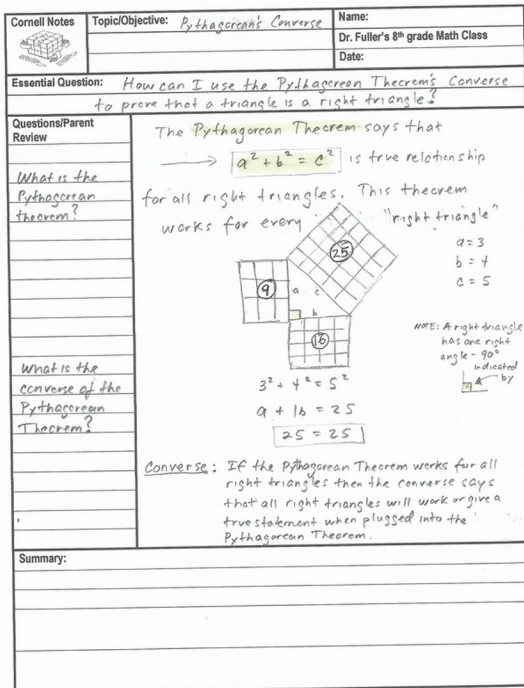 Cornell Notes
Topic/Objective: Pythagorean's Converse
Name:
Dr. Fuller's 8th grade Math Class
Date:
Essential Question: How can I use the Pythagorean Theorem's Converse
to prove that a triangle is a right triangle?
Questions/Parent
Review
What is the
Pythagorean
theorem?
What is the
converse of the
Pythagorean
Theorem?
The Pythagorean Theorem says that
→ a² + b² = c² is true relationship
for all right triangles. This theorem
works for every "right triangle"
a = 3
b = 4
c = 5
25
9
a
c
b
16
NOTE: A right triangle
has one right
angle - 90°
indicated
by
3² + 4² = 5²
9 + 16 = 25
25 = 25
Converse: If the Pythagorean Theorem works for all
right triangles then the converse says
that all right triangles will work or give a
true statement when plugged into the
Pythagorean Theorem.
Summary: